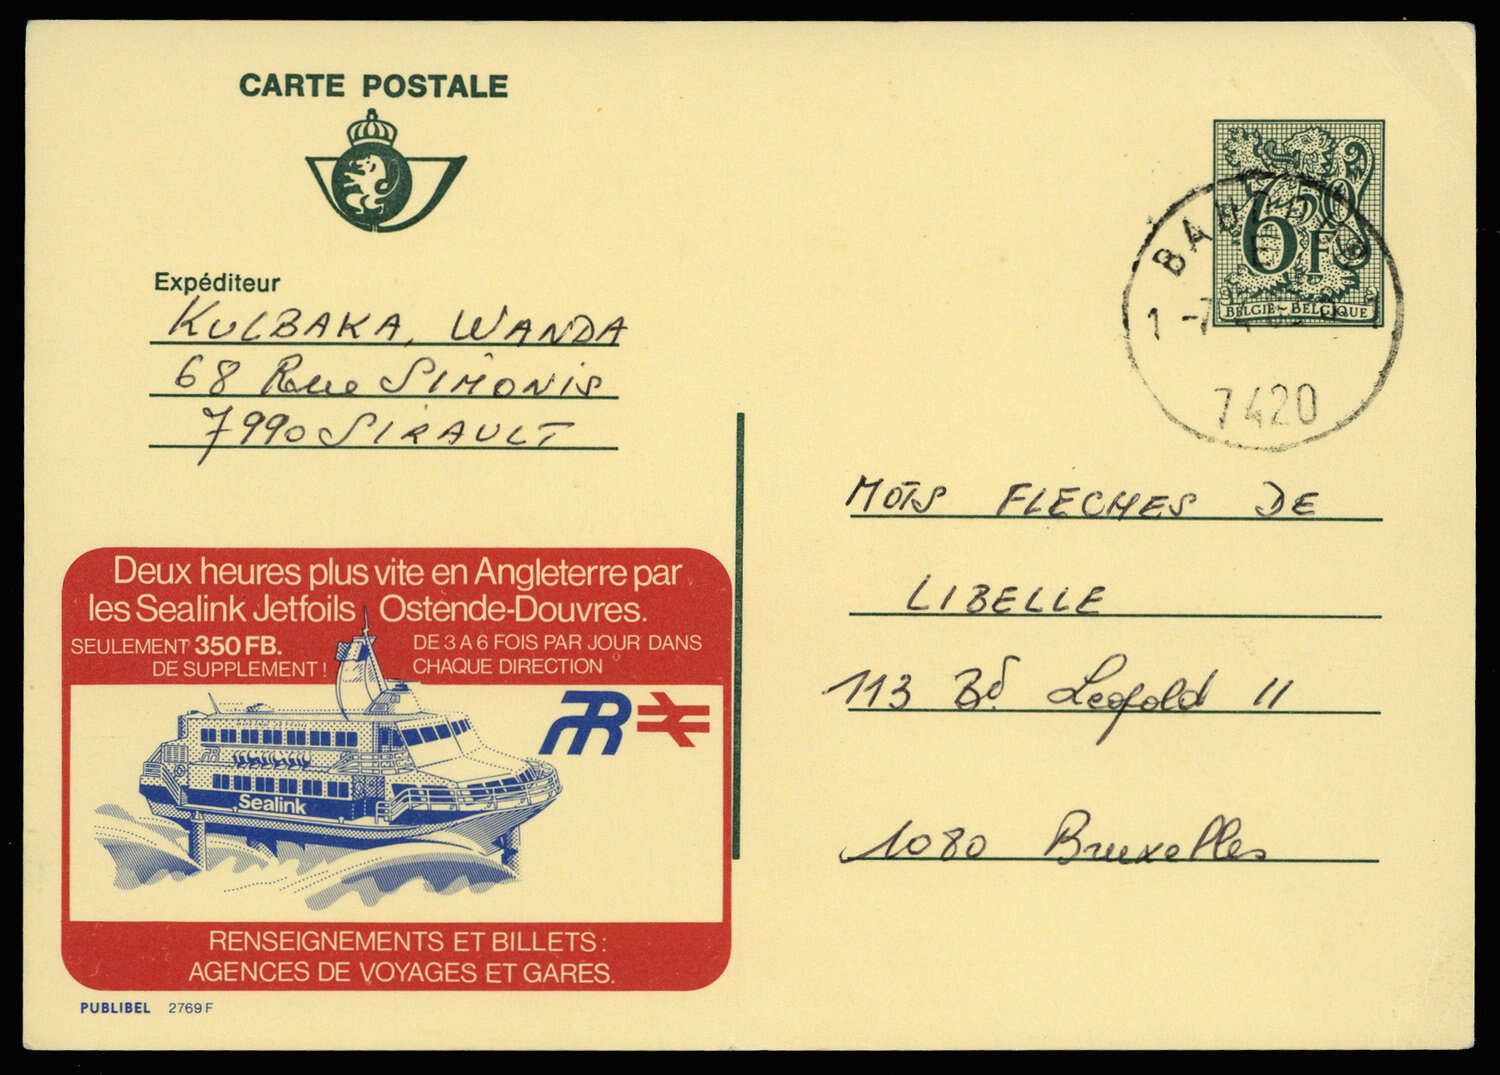 CARTE POSTALE
Expéditeur
KULBAKA, WANDA
68 Rue SIMONIS
7990 SIRAULT
6F
BELGIË-BELGIQUE
7420
MOTS FLECHES DE
LIBELLE
113 Bd. Leopold II
1080 Bruxelles
Deux heures plus vite en Angleterre par
les Sealink Jetfoils Ostende-Douvres.
SEULEMENT 350 FB.
DE SUPPLEMENT!
DE 3 A 6 FOIS PAR JOUR DANS
CHAQUE DIRECTION
Sealink
RENSEIGNEMENTS ET BILLETS:
AGENCES DE VOYAGES ET GARES.
PUBLIBEL 2769 F